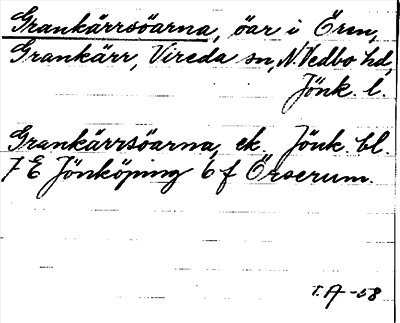 Grankärrsöarna, öar i Ören,
Grankärr, Vireda sn, N Vedbo hd,
Jönk. l.
Grankärrsöarna, ek. Jönk. bl.
7 E Jönköping 6 f Örserum.
T. A -58